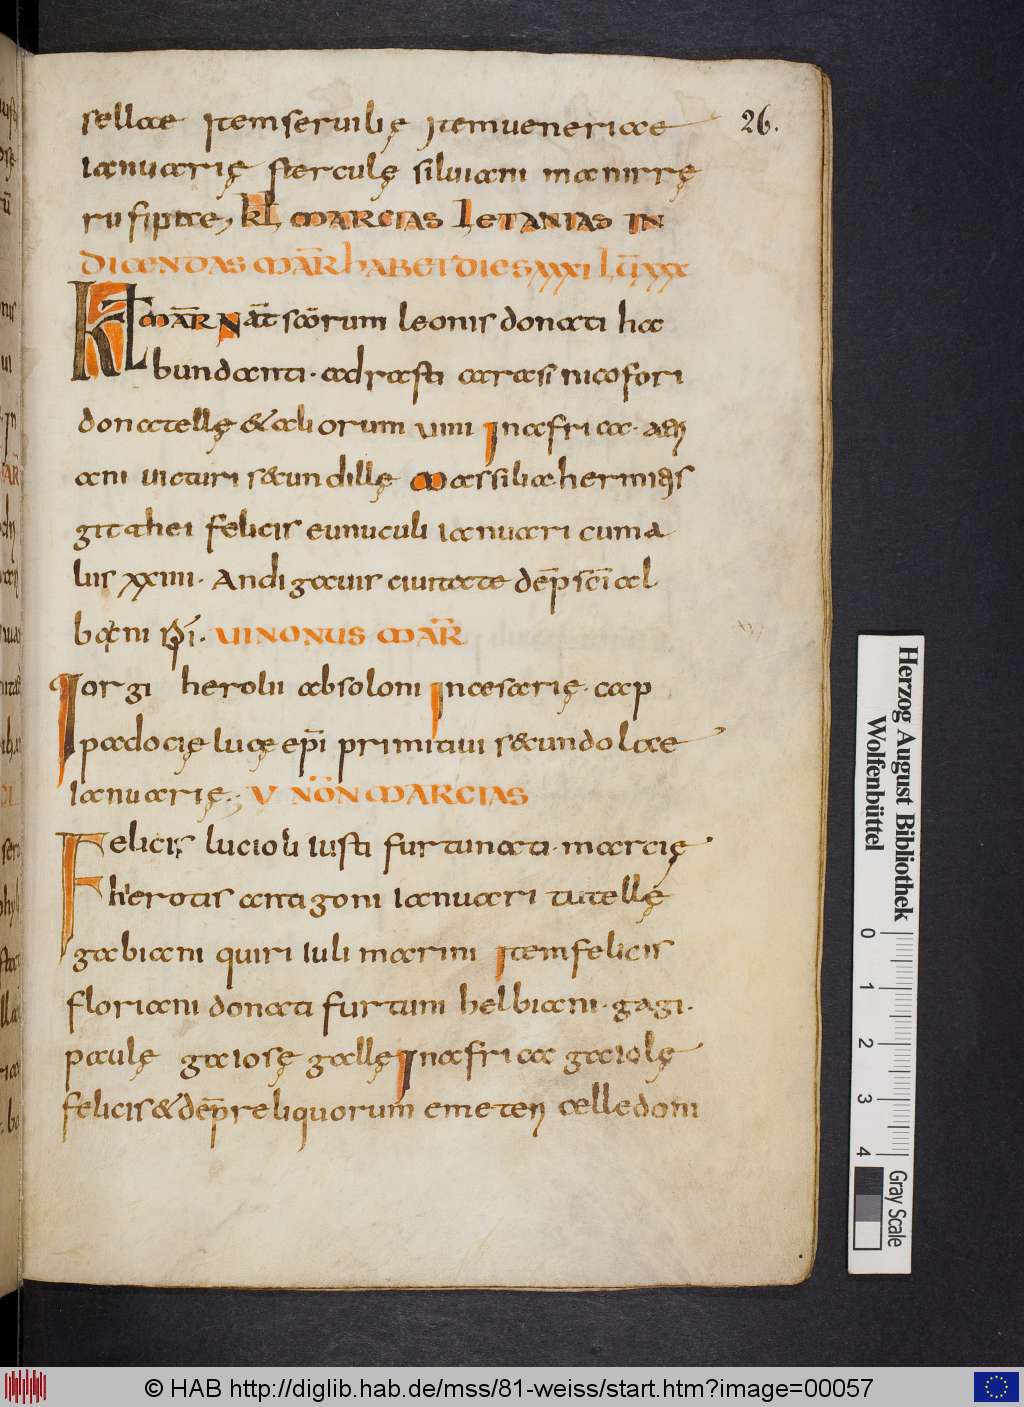 sellae Item seruilię Item ueneriae
26.
Ianuarię sterculę siluiani manirrę
rufiptae, kl MARCIAS LETANIAS IN
DICENDAS MAR̄ HABET DIES XXXI LŪ XXX
KL MAR̄ NAT̄ scōrum leonis donati ha
bundanti. adrasti carasi nicofori
donatellę & aliorum uiiii In africa.
ani uicturi s&undillę Massilia. hermi
gitahei felicis eunuculi ianuari cum a
liis xxiiii. Andigauis ciuitate dēp scī al
bani. VI NONUS MAR̄
Iorgi herolii absoloni In cesarię. cap
padocię lucę epī primitiui s&undolae
Ianuarię. V NON̄ MARCIAS
Felicis lucioli iusti furtunati. marcię
herotis antigoni ianuari tutellę
gabiani quiri iuli marini Item felicis
floriani donati furtuni helbiani. gagi.
paulę gaiosę gallę In africa gaiolę
felicis & dēp reliquorum emeten celledoni
Herzog August Bibliothek
Wolfenbüttel
0 1 2 3 4
Gray Scale
© HAB http://diglib.hab.de/mss/81-weiss/start.htm?image=00057